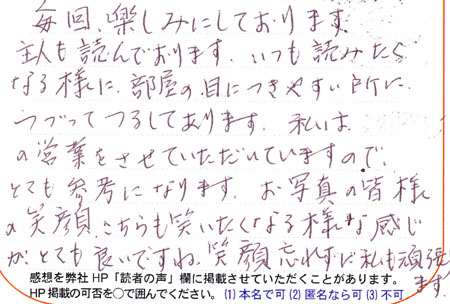 毎回、楽しみにしております。
主人も読んでおります。いつも読みたく
なる様に、部屋の目につきやすい所に
つづってつるしてあります。私は
の営業をさせていただいていますので、
とても参考になります。お写真の皆様
の笑顔、こちらも笑いたくなる様な感じ
がとても良いですね。笑顔忘れずに私も頑張り
ます。
感想を弊社HP「読者の声」欄に掲載させていただくことがあります。
HP掲載の可否を○で囲んでください。(1) 本名で可 (2) 匿名なら可 (3) 不可